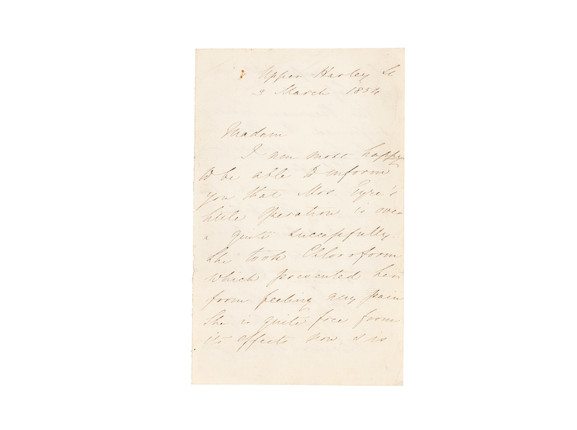 Upper Harley St
3 March 1854
Madam
I am most happy
to be able to inform
you that Mrs Fyre's
little operation is over
& quite successfully
She took Chloroform
which prevented her
from feeling any pain
She is quite free from
its effects now & is